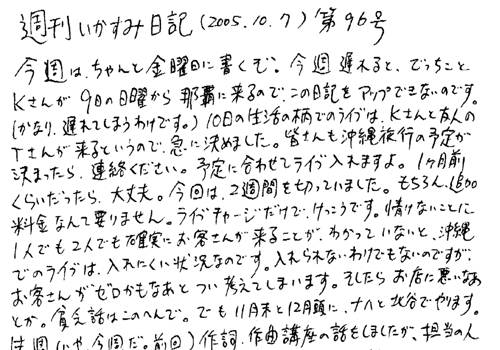 週刊いかすみ日記(2005.10.7)第96号
今週は、ちゃんと金曜日に書くぞ。今週遅れると、でっちこと
Kさんが9日の日曜から那覇に来るので、この日記をアップできないのです。
(かなり、遅れてしまうわけです。)10日の生活の柄でのライブは、Kさんと友人の
Tさんが来るというので、急に決めました。皆さんも沖縄旅行の予定が
決まったら、連絡ください。予定に合わせてライブ入れますよ。1ヶ月前
くらいだったら、大丈夫。今回は、2週間を切っていました。もちろん、
料金なんて要りません。ライブチャージだけで、けっこうです。情けないことに
1人でも2人でも確実にお客さんが来ることが、わかっていないと、沖縄
でのライブは、入れにくい状況なのです。入れられないわけでもないのですが、
お客さんがゼロかもなあとつい考えてしまいます。そしたらお店に悪いなあ
とか。貧乏話はこのへんで。でも11月末と12月頭に、ナハと北谷でやります。
先週(いや、今週だ。前回)作詞、作曲講座の話をしましたが、担当の人